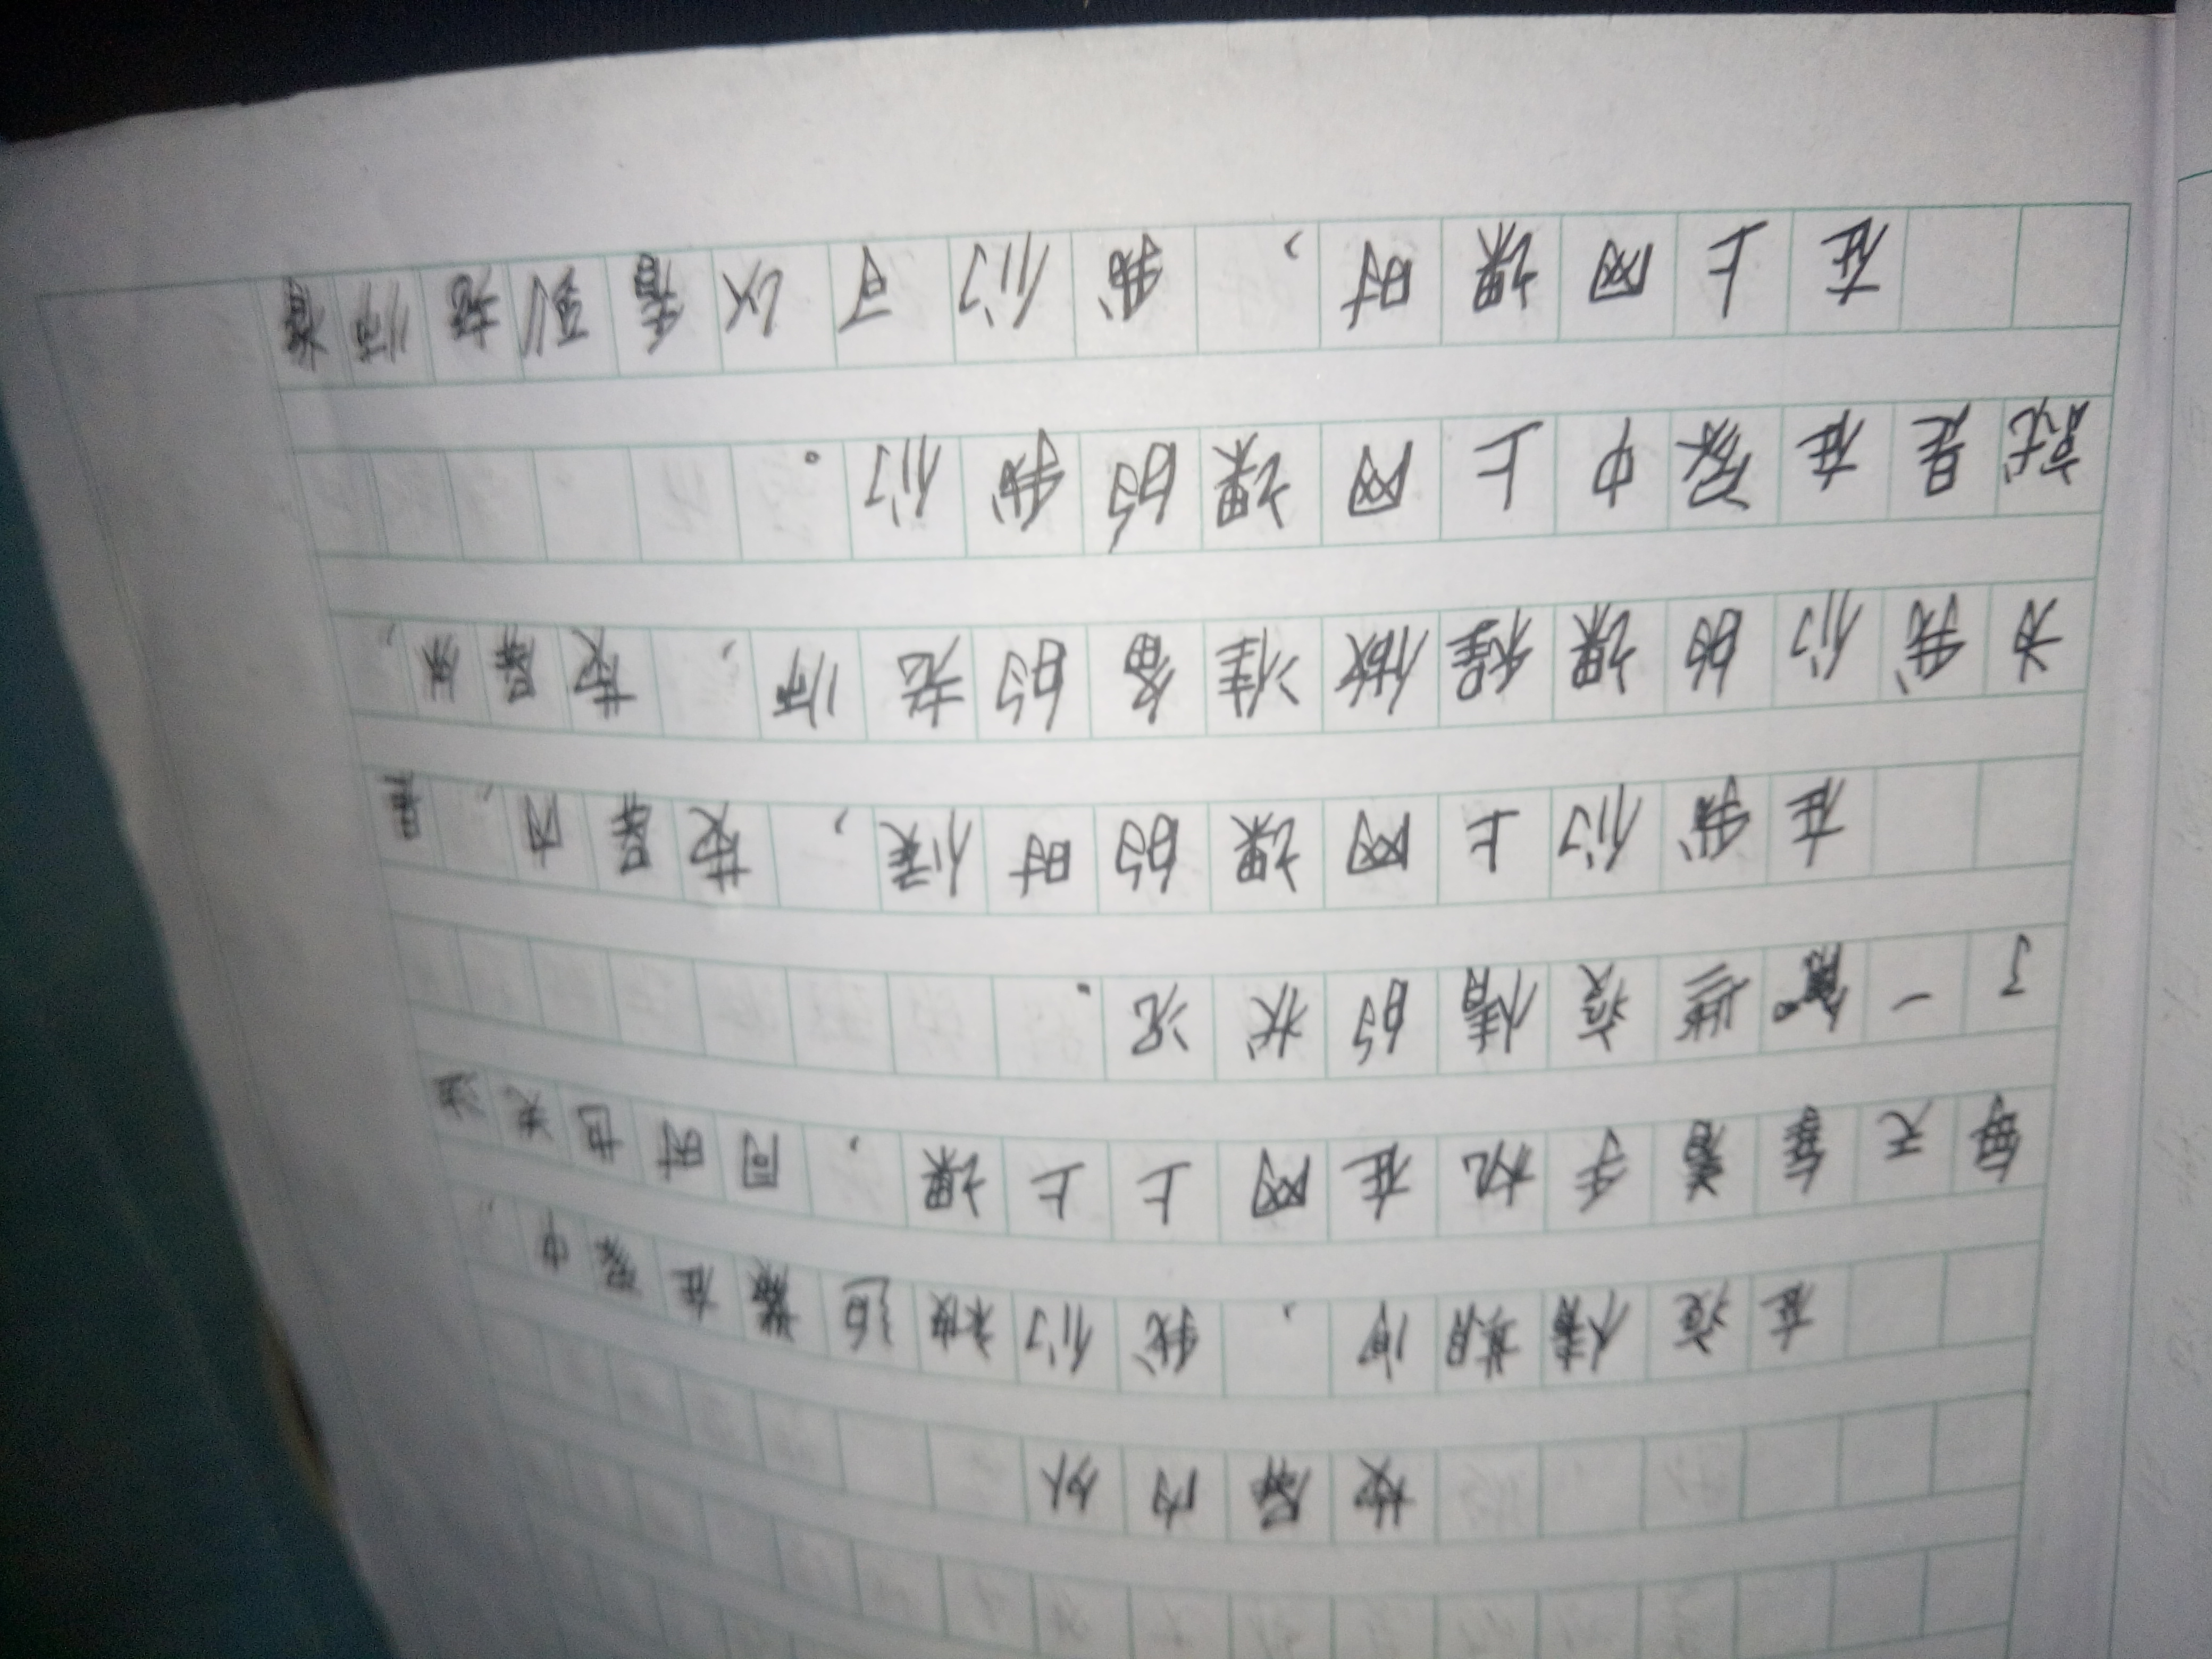 荧屏内外
在疫情期间，我们被迫在家中，
每天拿着手机在网上上课，同时也关注
了一些疫情的状况。
在我们上网课的时候，荧屏内，是
为我们的课程做准备的老师，荧屏外，
就是在家中上网课的我们。
在上网课时，我们可以看到老师